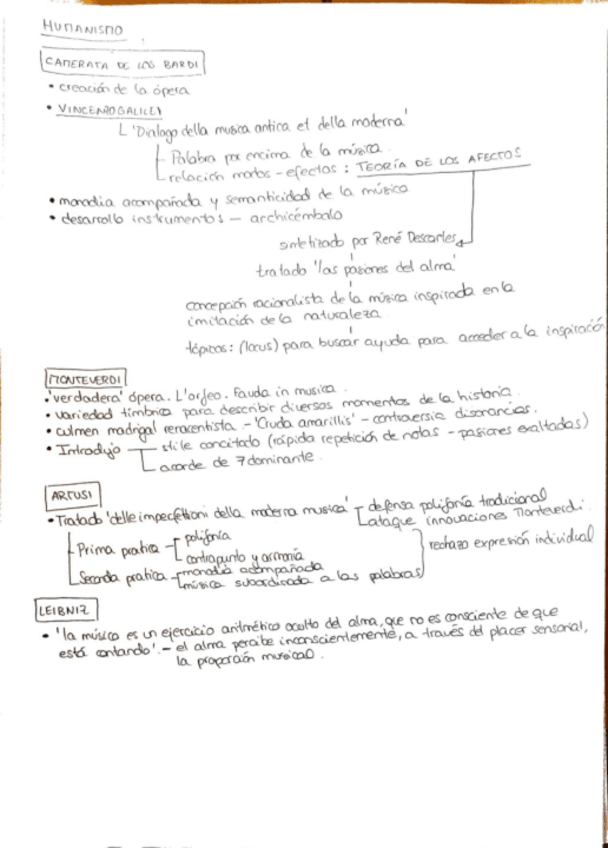 HUMANISMO
CAMERATA DE LOS BARDI
• creación de la ópera
• VINCENZO GALILEI
'Dialogo della musica antica et della moderna'
Palabra por encima de la música.
relación modos - efectos: TEORÍA DE LOS AFECTOS
• monodia acompañada y semanticidad de la música
• desarrollo instrumentos - archicémbalo
sintetizado por René Descartes
tratado 'las pasiones del alma'
concepción racionalista de la música inspirada en la
imitación de la naturaleza
tópicos: (locus) para buscar ayuda para acceder a la inspiració
MONTEVERDI
• 'verdadera' ópera. L'orfeo. Favda in musica.
• variedad tímbrica para describir diversos momentos de la historia.
• culmen madrigal renacentista. - 'Cruda amarillis' - controversia disonancias.
• Introdujo stile concitato (rápida repetición de notas - pasiones exaltadas)
acorde de 7 dominante.
ARTUSI
• Tratado 'delle imperfettioni della moderna musica' defensa polifonía tradicional
ataque innovaciones Monteverdi.
Prima pratica polifonía
contrapunto y armonía
rechazo expresión individual
Seconda pratica monodia acompañada
música subordinada a las palabras
LEIBNIZ
• 'la música es un ejercicio aritmético oculto del alma, que no es consciente de que
está contando'. - el alma percibe inconscientemente, a través del placer sensorial,
la proporción musical.